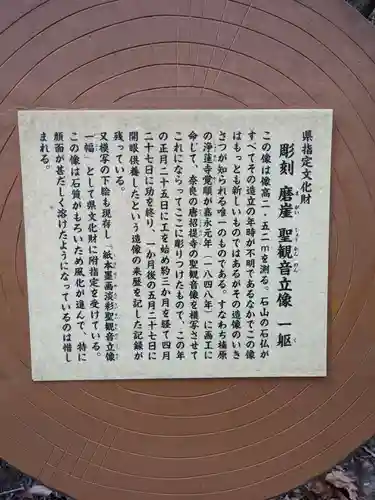 県指定文化財
彫刻 磨崖 聖観音立像 一躯
まがい しょうかんのん く
この像は像高二・五二mを測る。石山の石仏が
すべてその造立の年時が不明であるなかでこの像
はもっとも新しいものではあるがその造像のいき
さつが知られる唯一のものである。すなわち楠原
の浄蓮寺覚順が嘉永元年(一八四八年)に画工に
命じて、奈良の唐招提寺の聖観音像を模写させて
これにならってここに彫りつけたもので、この年
の正月二十五日に工を始め約三か月を経て四月
二十七日に功を終り、一か月後の五月二十七日に
開眼供養したという造像の来歴を記した記録が
残っている。
又模写の下絵も現存し「紙本墨画淡彩聖観音立像
一幅」として県文化財に附指定を受けている。
この像は石質がもろいため風化が進んで、特に
顔面が甚だしく溶けたようになっているのは惜し
まれる。